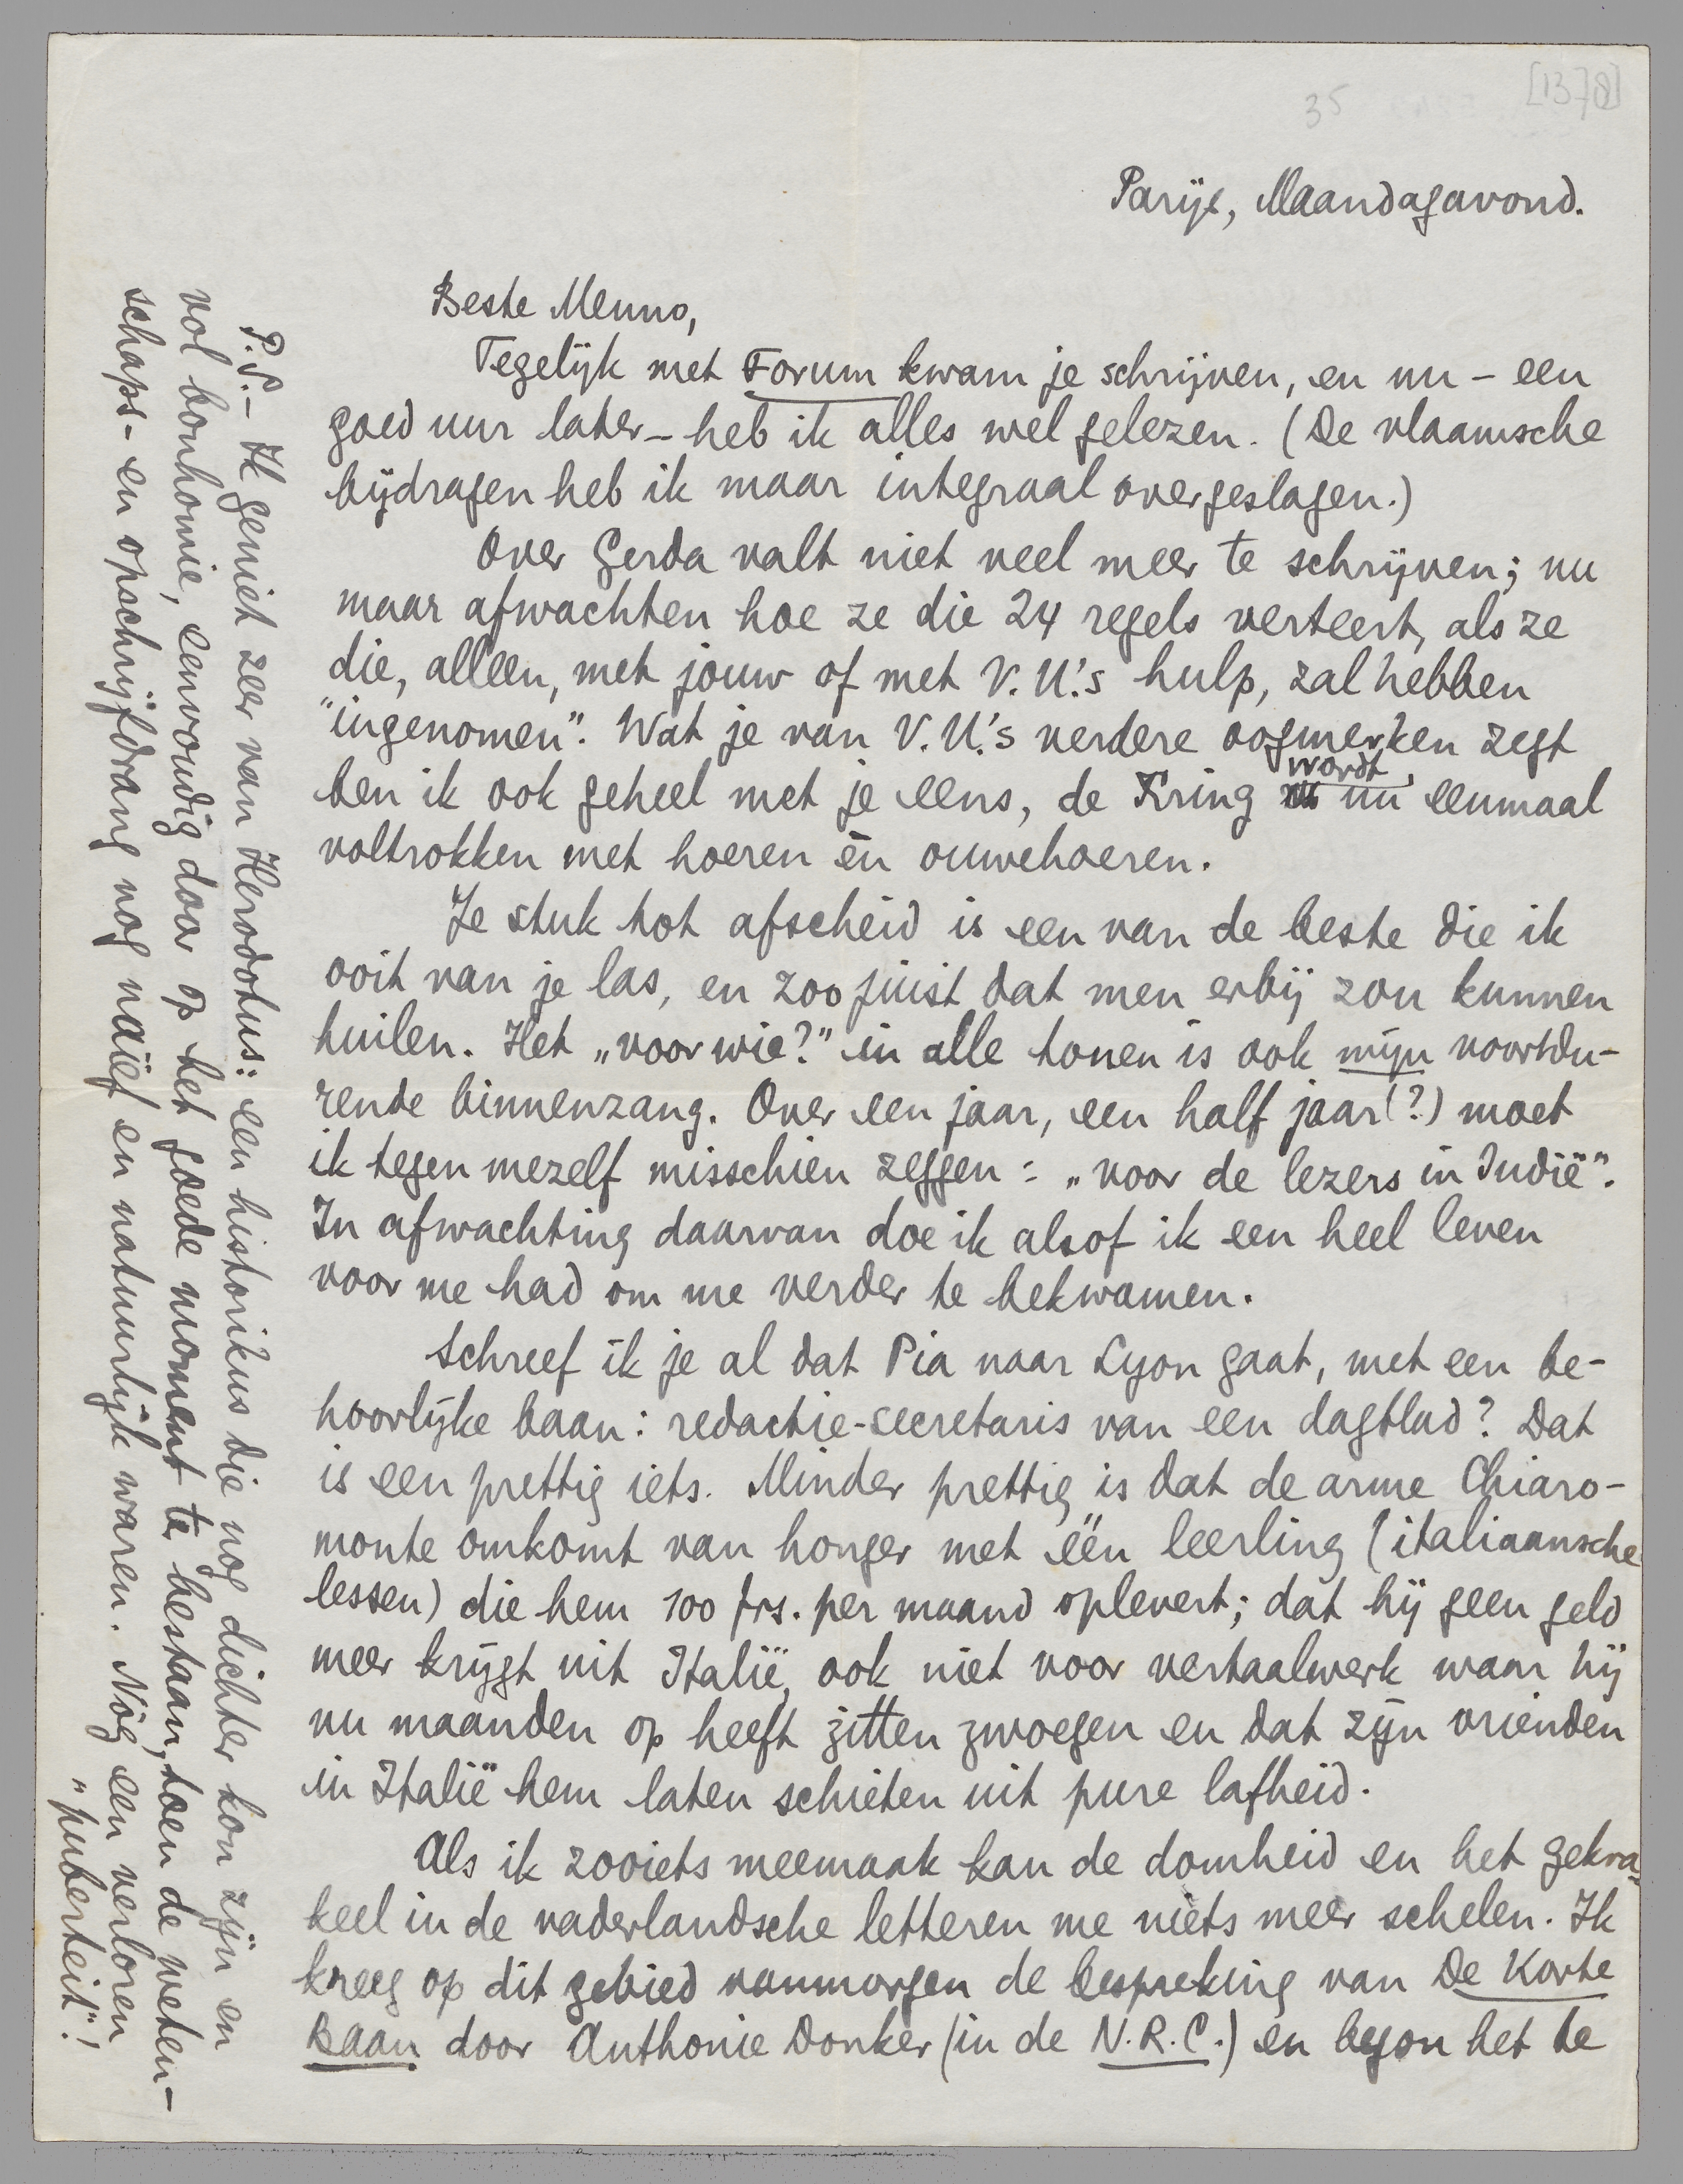 35
[1378]
Parijs, Maandagavond.
Beste Menno,
Tegelijk met Forum kwam je schrijven, en nu – een
goed uur later – heb ik alles wel gelezen. (De vlaamsche
bijdragen heb ik maar integraal overgeslagen.)
Over Gerda valt niet veel meer te schrijven; nu
maar afwachten hoe ze die 24 regels verteert, als ze
die, alleen, met jouw of met V.U.'s hulp, zal hebben
"ingenomen". Wat je van V.U.'s verdere oogmerken zegt
ben ik ook geheel met je eens, de Kring wordt nu eenmaal
voltrokken met hoeren èn ouwehoeren.
Je stuk tot afscheid is een van de beste die ik
ooit van je las, en zoo juist dat men erbij zou kunnen
huilen. Het „voor wie?" in alle tonen is ook mijn voortdu-
rende binnenzang. Over een jaar, een half jaar (?) moet
ik tegen mezelf misschien zeggen: „voor de lezers in Indië".
In afwachting daarvan doe ik alsof ik een heel leven
voor me had om me verder te bekwamen.
Schreef ik je al dat Pia naar Lyon gaat, met een be-
hoorlijke baan: redactie-secretaris van een dagblad? Dat
is een prettig iets. Minder prettig is dat de arme Chiaro-
monte omkomt van honger met één leerling (italiaansche
lessen) die hem 100 frs. per maand oplevert; dat hij geen geld
meer krijgt uit Italië, ook niet voor vertaalwerk waar hij
nu maanden op heeft zitten zwoegen en dat zijn vrienden
in Italië hem laten schieten uit pure lafheid.
Als ik zooiets meemaak kan de domheid en het gekra-
keel in de vaderlandsche letteren me niets meer schelen. Ik
kreeg op dit gebied vanmorgen de bespreking van De Korte
Baan door Anthonie Donker (in de N.R.C.) en begon het te
P.S. – Ik geniet zeer van Herodotus: een historikus die nog dichter kon zijn en
vol bonhomie, eenvoudig door op het goede moment te bestaan, toen de weten-
schaps- en opschrijfdrang nog naïef en natuurlijk waren. Nòg een verloren
„puberteit"!